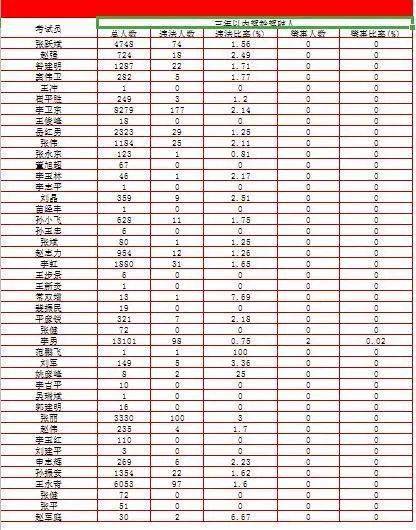 考试员 三年以内驾龄驾驶人
总人数 违法人数 违法比率(%) 肇事人数 肇事比率(%)
张跃斌 4748 74 1.56 0 0
赵强 724 18 2.49 0 0
智建明 1287 22 1.71 0 0
窦伟卫 282 5 1.77 0 0
王冲 1 0 0 0 0
崔平胜 249 3 1.2 0 0
李卫东 8279 177 2.14 0 0
王俊峰 18 0 0 0 0
岳红勇 2323 29 1.25 0 0
张伟 1184 25 2.11 0 0
张永东 123 1 0.81 0 0
董旭超 67 0 0 0 0
李玉林 46 1 2.17 0 0
李志平 1 0 0 0 0
刘磊 359 9 2.51 0 0
苗经丰 1 0 0 0 0
孙小飞 628 11 1.75 0 0
孙玉忠 6 0 0 0 0
张斌 80 1 1.25 0 0
赵志力 954 12 1.26 0 0
李红 1880 31 1.65 0 0
王步景 6 0 0 0 0
王新安 1 0 0 0 0
常双增 13 1 7.69 0 0
振民 19 0 0 0 0
平俊峻 321 7 2.18 0 0
张健 72 0 0 0 0
李勇 13101 98 0.75 2 0.02
范鹏飞 1 1 100 0 0
刘军 149 5 3.36 0 0
姚俊峰 8 2 25 0 0
李占平 10 0 0 0 0
吴瑞斌 1 0 0 0 0
郭建明 16 0 0 0 0
张丽 3330 100 3 0 0
赵伟 235 4 1.7 0 0
李玉红 110 0 0 0 0
刘建平 3 0 0 0 0
申志辉 269 6 2.23 0 0
孙振安 1354 22 1.62 0 0
王永奇 6053 97 1.6 0 0
张健 72 0 0 0 0
张平 51 0 0 0 0
赵军庭 30 2 6.67 0 0